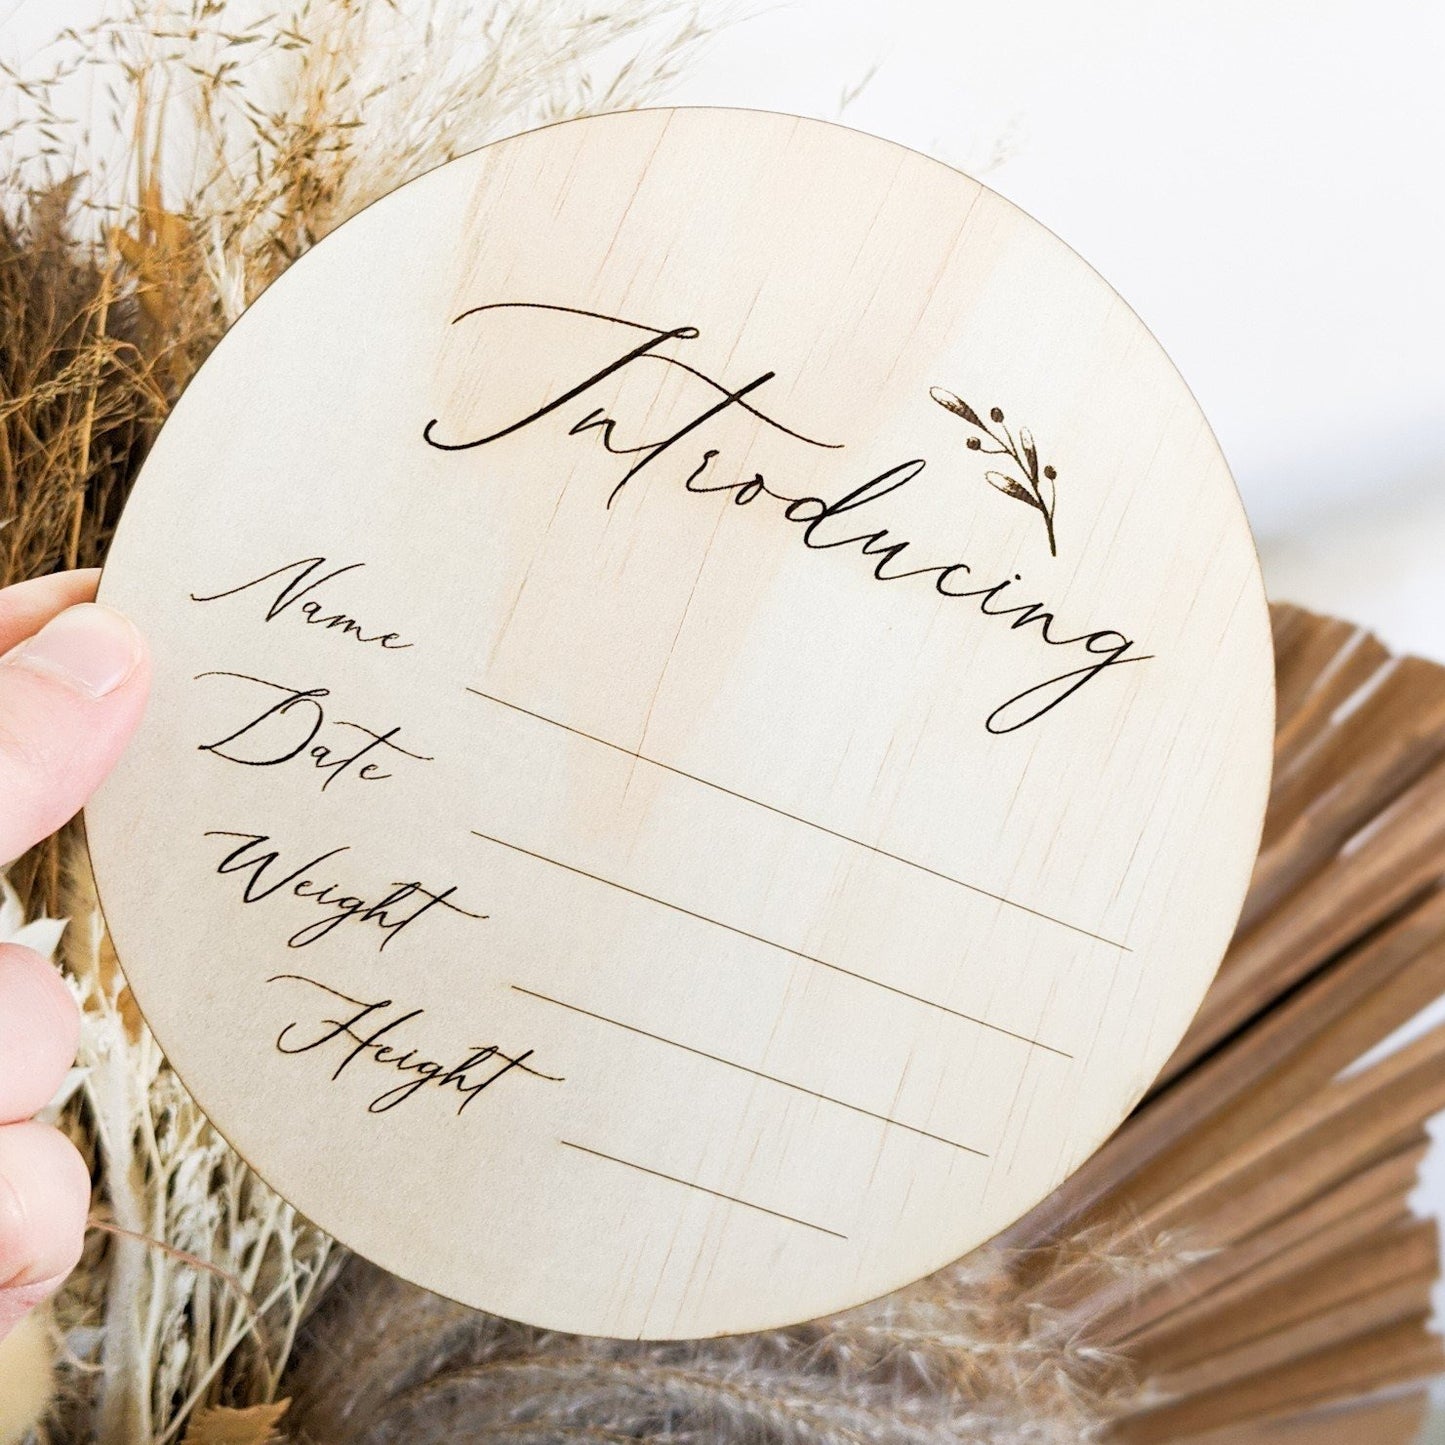 Introducing
Name
Date
Weight
Height